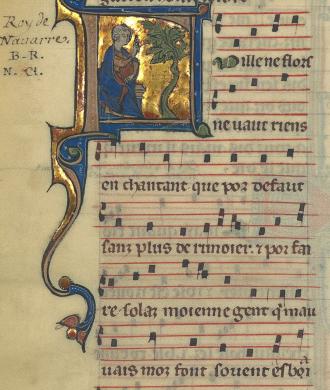 Roy de
Navarre.
B. R.
uille ne flors
ne vaut riens
en chantant que por defaut
sanz plus de rimoier. ⁊ por fai
re solaz moienne gent qͥ mau
uais moz font souent